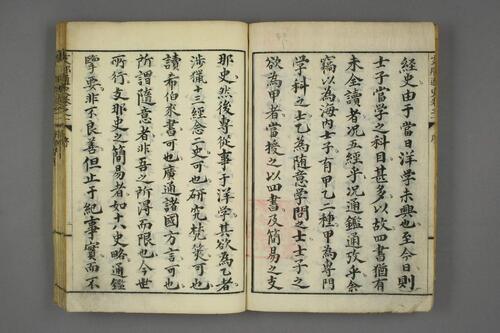 經史由于當日洋學未興也至今日則
士子當學之科目甚多以故四書猶有
未全讀者况五經乎况通鑑通攷乎余
竊以為海内士子有甲乙二種甲為專門
學科之士乙為随意學問之士士子之
欲為甲者當授之以四書及簡易之支
那史然後專從事于洋學其欲為乙者
涉獵十三經念二史可也研究梵筴可也
讀希伯來書可也廣通諸國方言可也
所謂随意者非吾之所得而限也今世
所行支那史之簡易者如十八史略通鑑
擥要非不良善但止于紀事實而不